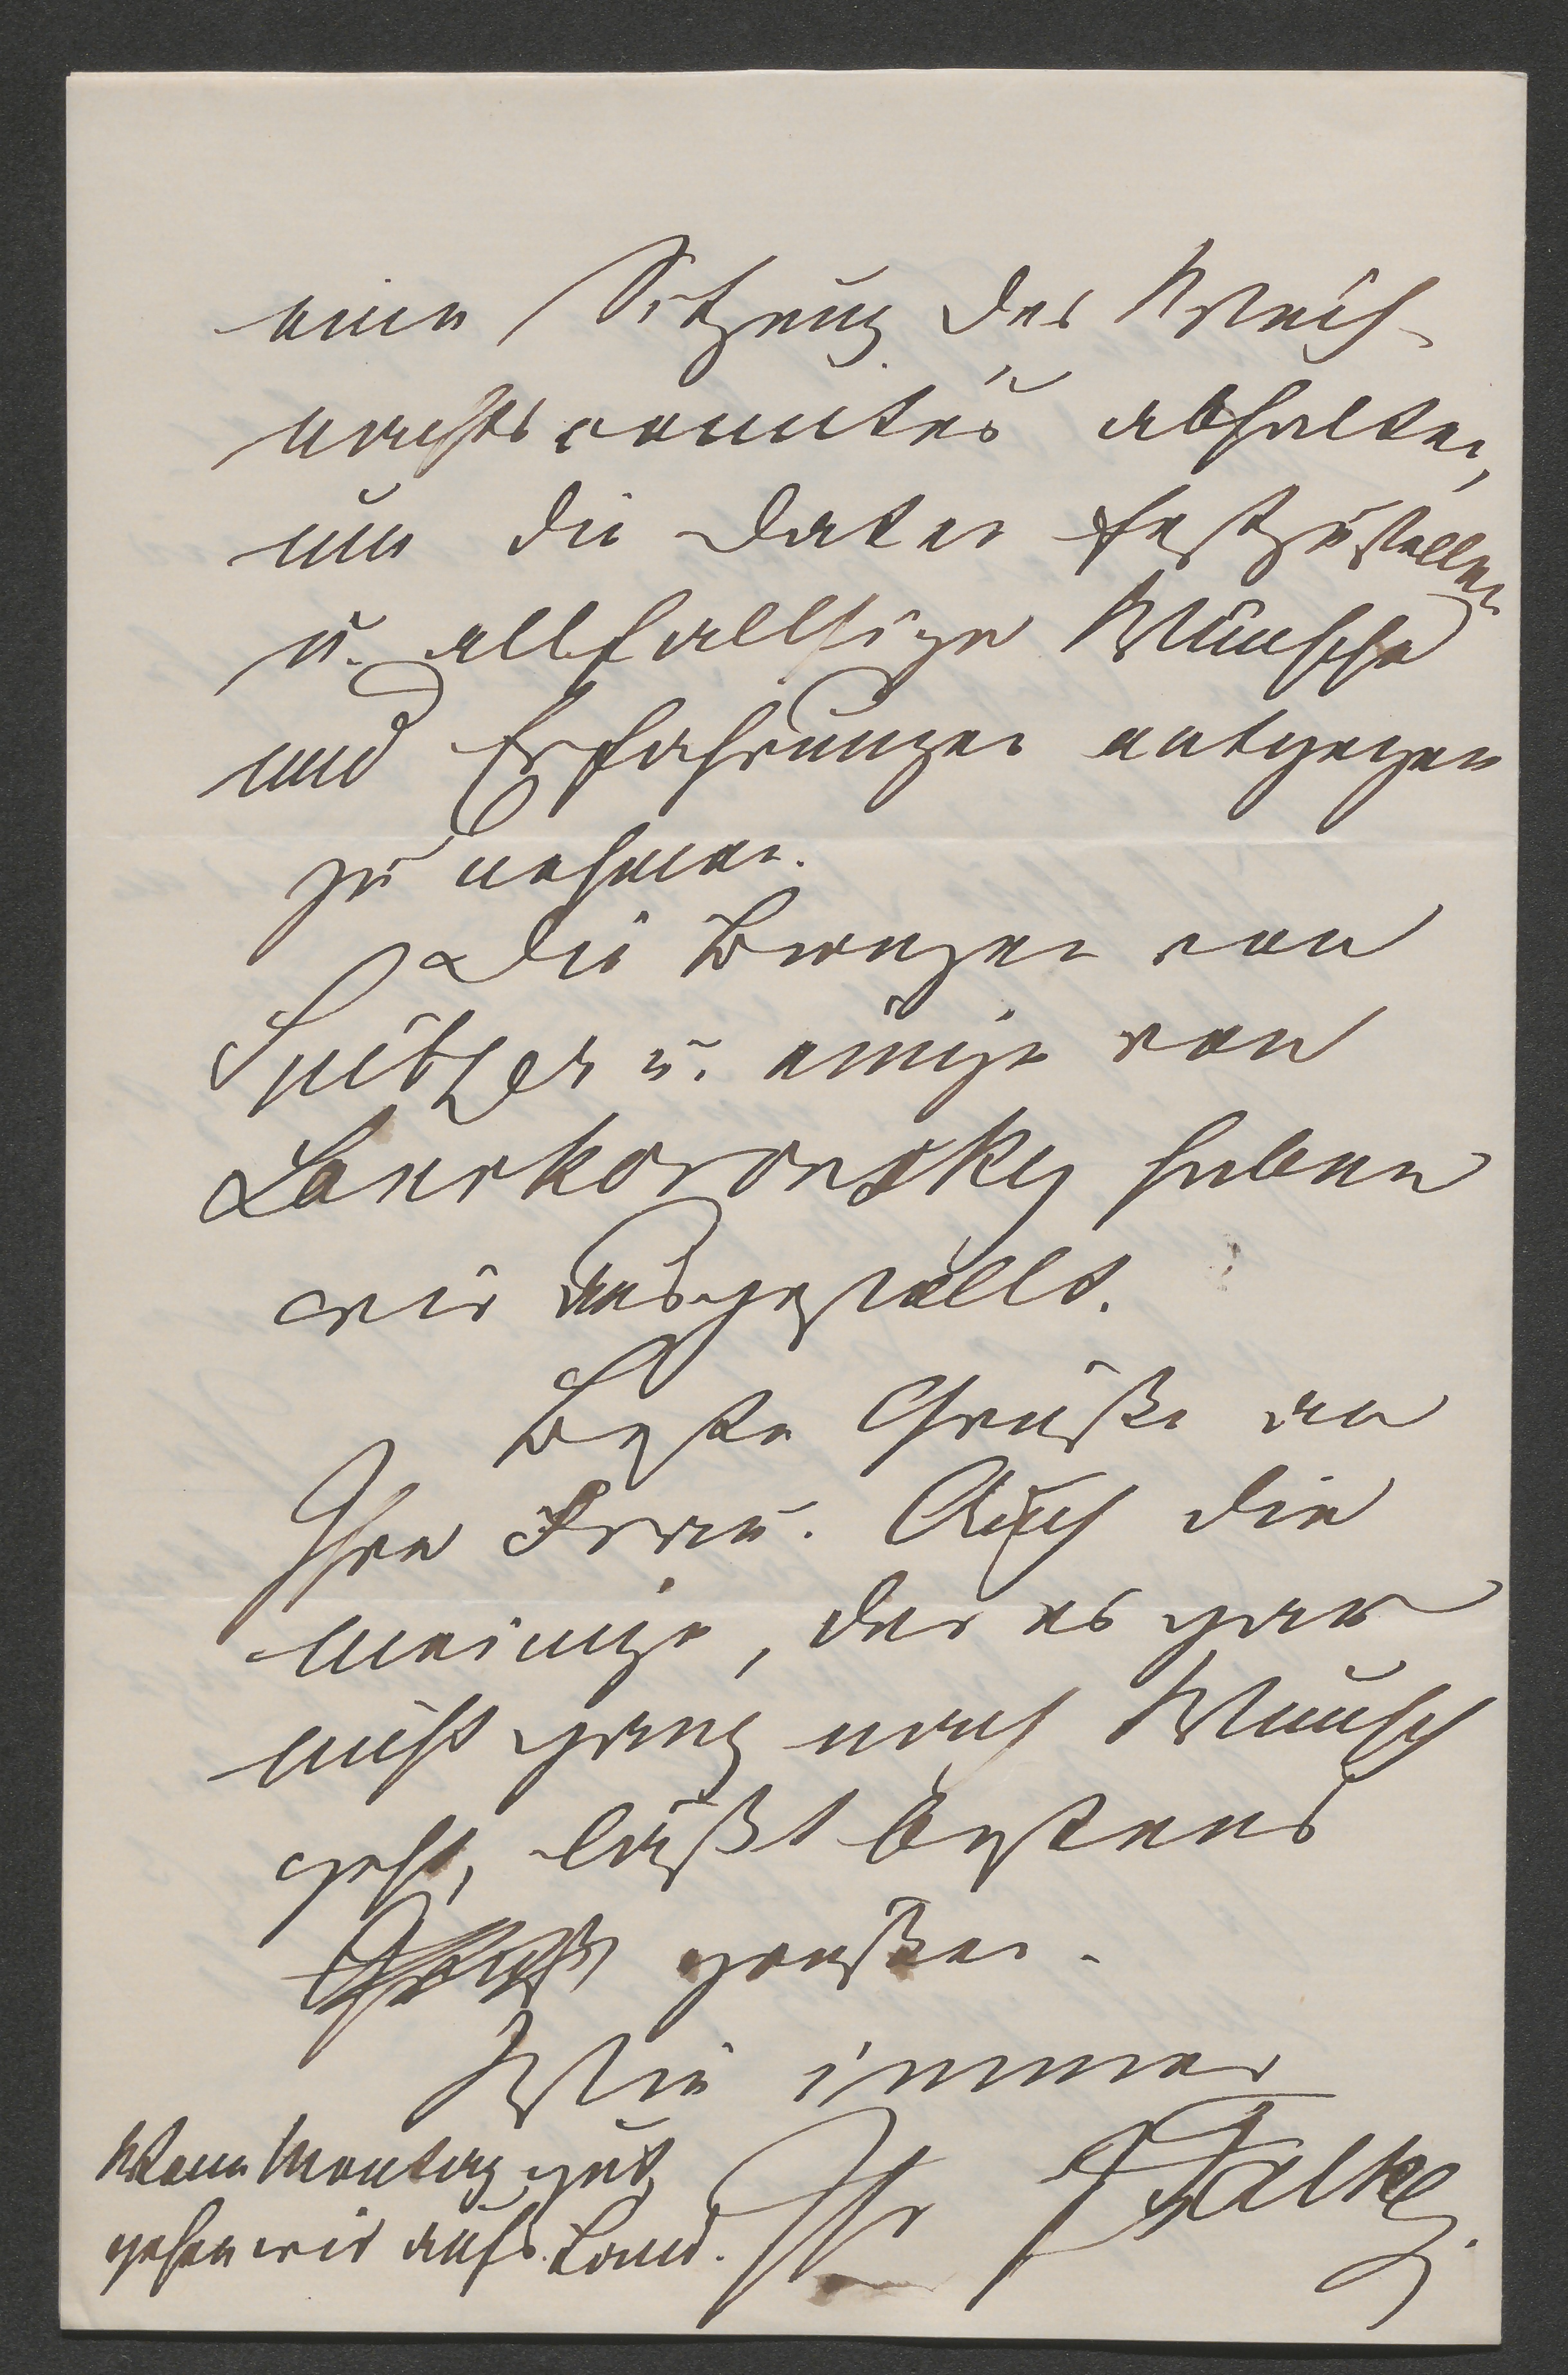 eine Sitzung des Weih-
nachtscomités abhalten,
um die Daten festzustellen
u. allfallsige Wünsche
und Erfahrungen entgegen
zu nehmen.
Die Bronzen von
Spitzer u. einige von
Lanckoronsky haben
wir ausgestellt.
Beste Grüße an
Ihre Frau. Auch die
meinige, der es gar
nicht ganz nach Wunsch
geht, läßt bestens
grüßen.
Wie immer
Ihr JFalke
Wenn Montag gut,
gehen wir aufs Land.